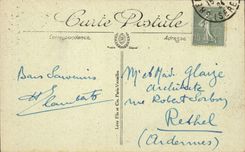 Carte Postale
Correspondance
Adresse
Bons Souvenirs
H. Lambert
Mr et Mad. Glaize
Architecte
rue Robert Sorbon
Rethel
(Ardennes)